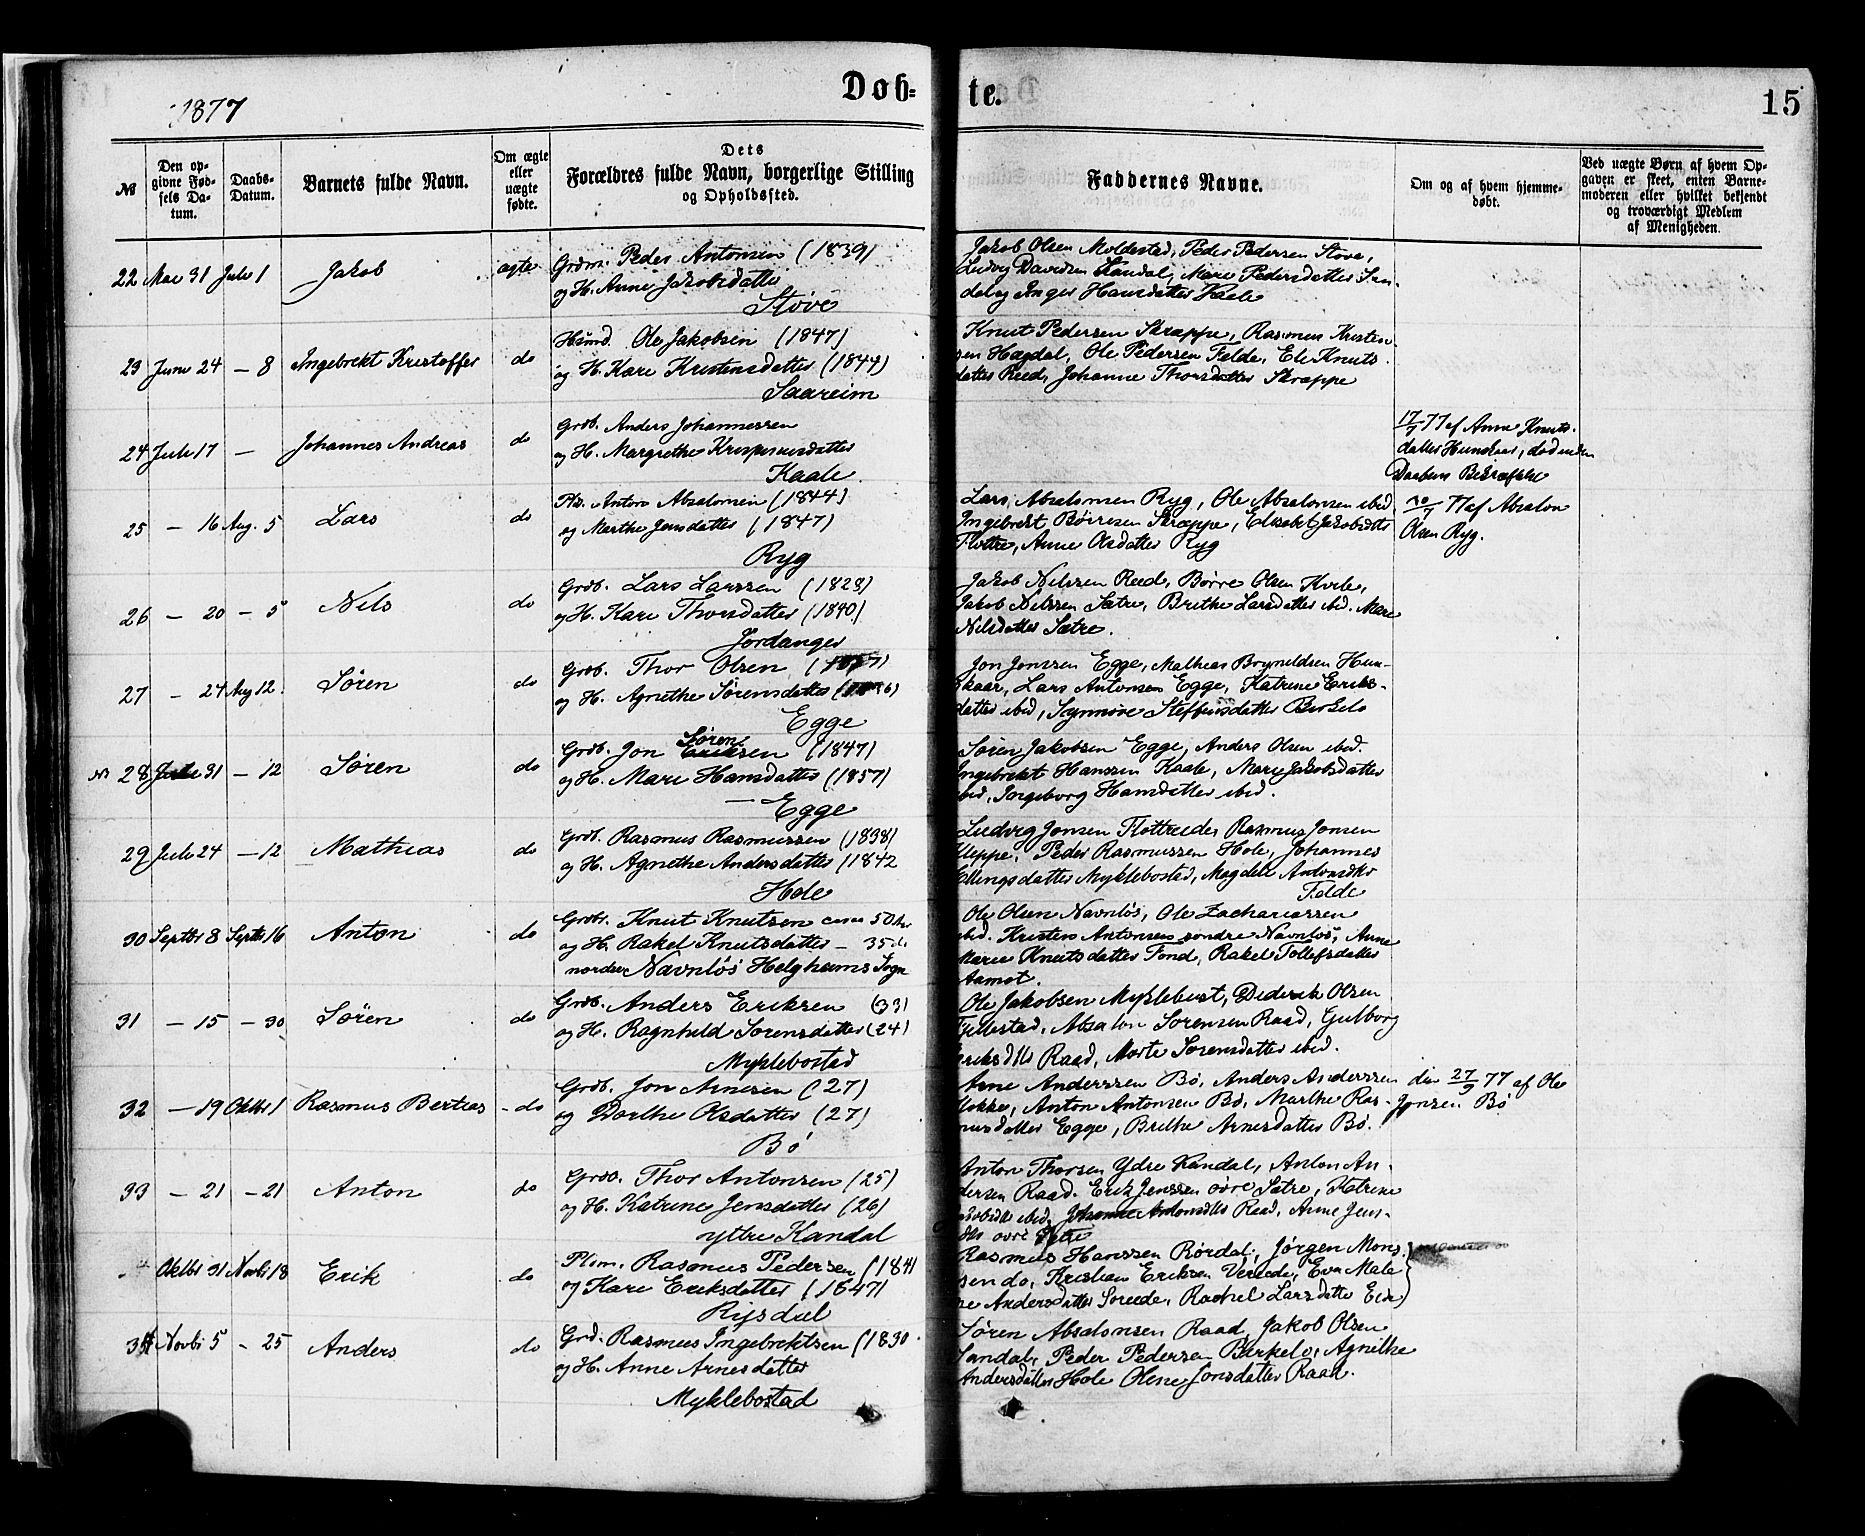 1877
Døb=
te.
15
№
Den op-
givne Fød-
sels Da-
tum.
Daabs-
Datum.
Barnets fulde Navn.
Om ægte
eller
uægte
fødte.
Dets
Forældres fulde Navn, borgerlige Stilling
og Opholdssted.
Faddernes Navne.
Om og af hvem hjemme-
døbt.
Ved uægte Børn af hvem Op-
gaven er skeet, enten Barne-
moderen eller hvilket bekjendt
og troværdigt Medlem
af Menigheden.
22 Mai 31 Juli 1 Jakob ægte Grdm. Peder Antonsen (1839)
og H. Anne Jakobsdatter
Støve
Jakob Olsen Moldestad, Peder Pedersen Støve,
Ludvig Davidsen Sandal, Mari Pedersdatter San-
dal og Inger Hansdatter Kaale
23 Juni 24 — 8 Ingebrekt Kristoffer do Husmd. Ole Jakobsen (1847)
og H. Kari Kristensdatter (1844)
Saareim
Knut Pedersen Skræppe, Rasmus Kristen-
sen Hægdal, Ole Pedersen Felde, Eli Knuts-
datter Reed, Johanne Thorsdatter Skræppe
24 Juli 17 — Johannes Andreas do Grdb. Anders Johannessen
og H. Margrethe Krispinusdatter
Kaale
17/7 77 af Anne Knuts-
datter Hunskaar, død uden
Daabens Bekræftelse
25 — 16 Aug. 5 Lars do Pls. Anton Absalonsen (1844)
og Marthe Jensdatter (1847)
Ryg
Lars Absalonsen Ryg, Ole Absalonsen ibid.
Ingebrekt Børresen Skræppe, Elisabet Jakobsdtr
Flottre, Anne Olsdatter Ryg
20/7 77 af Absalon
Olsen Ryg.
26 — 20 — 5 Nils do Grdb. Lars Larssen (1828)
og H. Kari Thorsdatter (1840)
Jordanger
Jakob Nilssen Reed, Børre Olsen Kvile,
Jakob Nilssen Sætre, Brithe Larsdatter ibd. Mari
Nilsdatter Sætre.
27 — 24 Aug 12. Søren do Grdb. Thor Olsen
og H. Agnethe Sørensdatter
Egge
Jon Jonssen Egge, Mathias Brynildsen Hun-
skaar, Lars Antonsen Egge, Katrine Eriks-
datter ibid, Synnøve Steffensdatter Birkelo
28 Juli 31 — 12 Søren do Grdb. Jon Sørensen (1847)
og H. Mari Hansdatter (1857)
Egge
Søren Jakobsen Egge, Anders Olsen ibid.
Ingebrekt Hanssen Kaale, Mari Jakobsdatter
ibid, Ingeborg Hansdatter ibid.
29 Juli 24 — 12 Mathias do Grdb. Rasmus Rasmussen (1838)
og H. Agnethe Andersdatter (1842
Hole
Ludvig Jonsen Flottreeder Rasmus Jonsen
Kleppe, Peder Rasmussen Hole, Johannes
Ellingsdatter Myklebostad, Magdeli Antonsdtr
Felde
30 Septbr 8 Septbr 16 Anton do Grdbr. Knut Knutsen circa 50 Aar
og H. Rakel Knutsdatter — 35 do
nordre Navnløs Helgheims Sogn
Ole Olsen Navnløs, Ole Zachariassen
ibid. Kristen Antonsen søndre Navnløs, Anne
Marie Knutsdatter Fond, Rakel Tollefsdatter
Aamot.
31 — 15 — 30 Søren do Grdb. Anders Eriksen (33)
og H. Ragnhild Sørensdatter (24)
Myklebostad
Ole Jakobsen Myklebust, Diderik Olsen
Fyllestad, Absalon Sørensen Raad, Gulborg
Eriksdtr Raad, Marte Sørensdatter ibid.
32 — 19 Oktbr 1 Rasmus Bertias do Grdb. Jon Arnesen (27)
og Dorthe Olsdatter (27)
Bø
Arne Anderssen Bø, Anders Anderssen
Flokke, Anton Antonsen Bø, Marthe Ras-
musdatter Egge, Brithe Arnesdatter Bø.
den 27/9 77 af Ole
Jonsen Bø
33 — 21 — 21 Anton do Grdb. Thor Antonsen (25)
og H. Katrine Jensdatter (26)
yttre Kandal
Anton Thorsen Ydre Kandal, Anton An-
dersen Raad. Erik Jenssen øvre Sætre, Katrine
ibid, Johanne Antonsdtr Raad, Anne Jens-
dtr øvre Sætre
Oktbr 31 Novbr 18 Erik do Plsm. Rasmus Pedersen (1841
og Kari Eriksdatter (1847)
Rysdal
Rasmus Hanssen Rørdal, Jørgen Mons-
sen do, Kristian Eriksen Vereide, Eva Male
ne Andersdatter Soreede, Rachel Larsdatter Eide
34 Novbr 5 — 25 Anders do Grd. Rasmus Ingebrektsen (1830
og H. Anne Arnesdatter
Myklebostad
Søren Absalonsen Raad, Jakob Olsen
Sandal, Peder Pedersen Birkelo, Agnethe
Andersdatter Hole Oline Jonsdatter Raad.